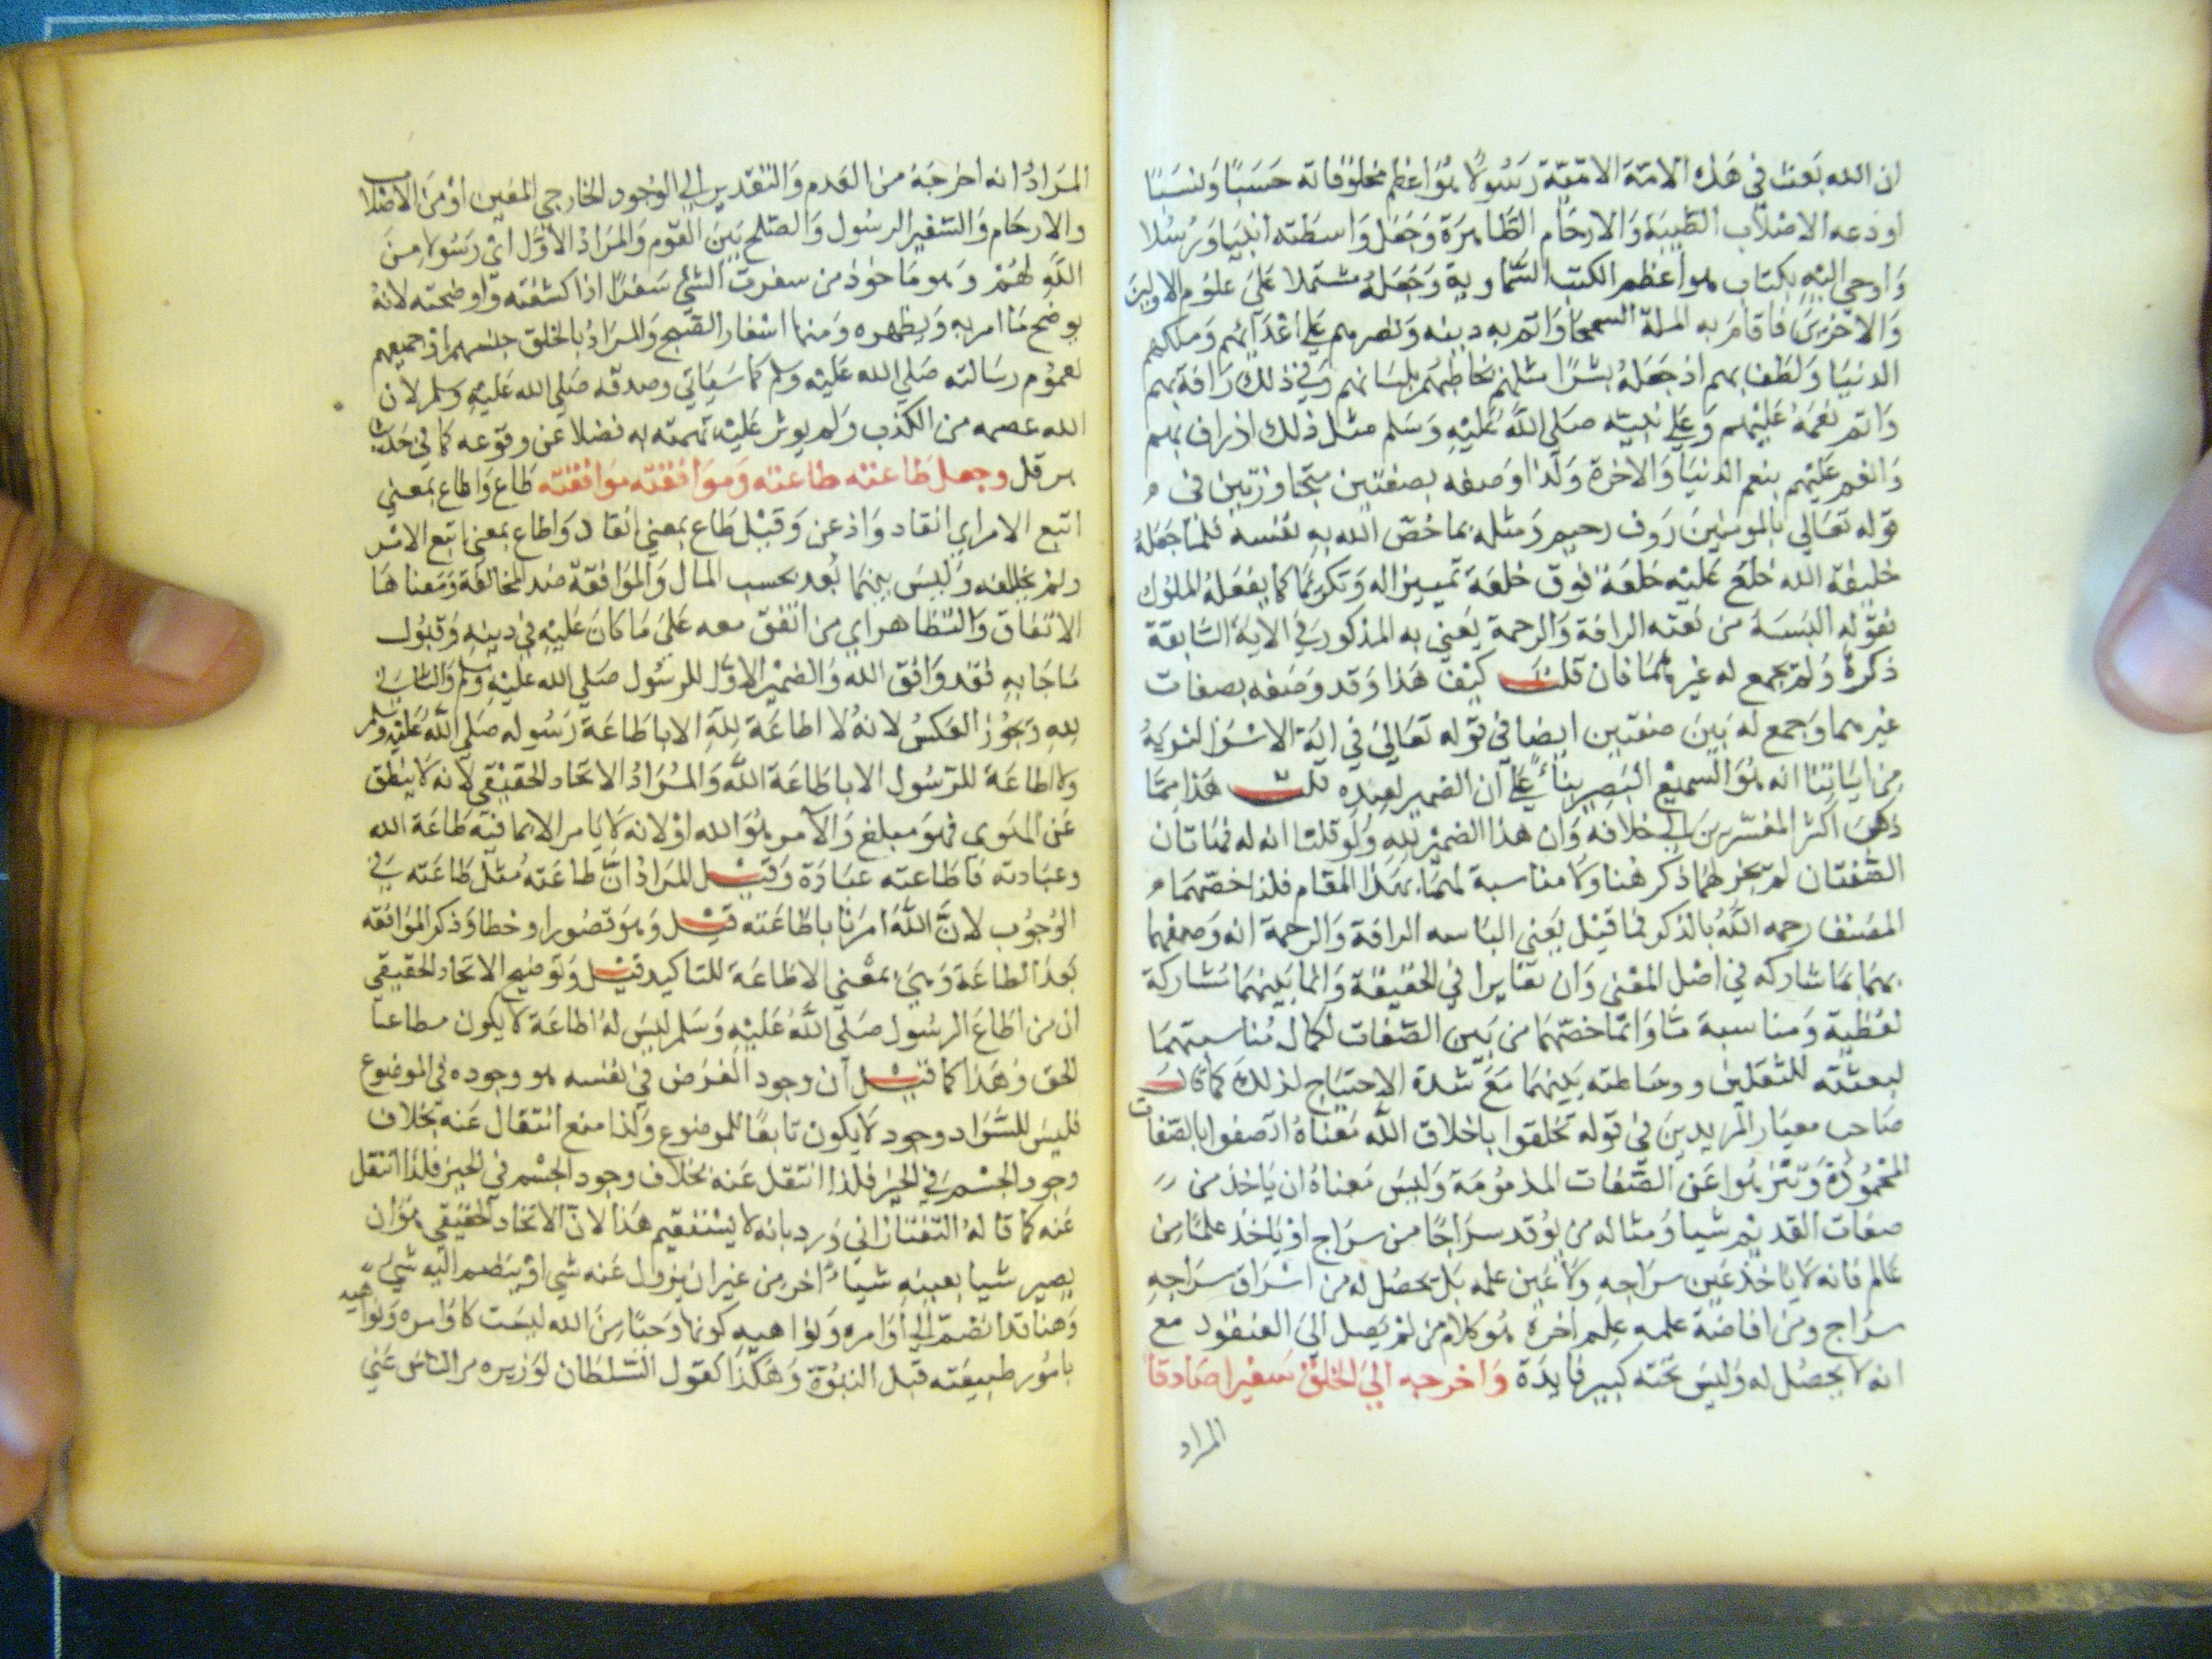 ان الله بعث في هذه الامة الامية رسولا هو اعظم مخلوقاته حسبا ونسبا
اودعه الاصلاب الطيبة والارحام الطاهرة وجعل واسطته انبيا ورسلا
واوحي اليه بكتاب هو اعظم الكتب السماوية وجعله مشتملا على علوم الاولين
والاخرين فاقام به الملة السمحا واتم به دينه ونصرهم علي اعدآئهم وملكهم
الدنيا ولطف بهم اذ جعله بشرا مثلهم يخاطبهم بلسانهم وفي ذلك رافة بهم
واتم نعمه عليهم وعلي نبيه صلي الله عليه وسلم مثل ذلك اذ راف بهم
وانعم عليهم بنعم الدنيا والاخرة ولذا وصفه بصفتين متجاوزتين في
قوله تعالي بالمومنين روف رحيم ومثله بما خص الله به نفسه فلما جعله
خليفة الله خلع عليه خلعة فوق خلعة تمييزا له وتكريما كما يفعله الملوك
فقوله البسه من نعته الرافة والرحمة يعني به المذكور في الاية السابقة
ذكره ولم يجمع له غيرهما فان قلت كيف هذا وقد وصفه بصفات
غيرهما وجمع له بين صفتين ايضا في قوله تعالي في اية الاسرا لنريه
من اياتنا انه هو السميع البصير بناء علي ان الضمير لعبده قلت هذا مما
ذهب اكثر المفسرين الي خلافه وان هذا الضمير لله ولو قلنا انه له فهاتان
الصفتان لم يجر لهما ذكر هنا ولا مناسبة لهما بهذا المقام فلذا خصهما
المصنف رحمه الله بالذكر فما قيل يعني الباسه الرافة والرحمة انه وصفهما
بهما بما شاركه في اصل المعني وان تغايرا في الحقيقة وانما بينهما مشاركة
لفظية ومناسبة ما وانما خصهما من بين الصفات لكمال مناسبتهما
لبعثته للثقلين ووساطته بينهما مع شدة الاحتياج لذلك كما قال
صاحب معيار المريدين في قوله تخلقوا باخلاق الله معناه اتصفوا بالصفات
المحمودة وتنزهوا عن الصفات المذمومة وليس معناه ان ياخذ من
صفات القديم شيا ومثاله من يوقد سراجا من سراج او ياخذ علما من
عالم فانه لا ياخذ عين سراجه ولا عين علمه بل يحصل له من اشراق سراجه
سراج ومن افاضة علمه علم اخر هو كلام من لم يصل الي العنقود مع
انه لا يحصل له وليس تحته كبير فايدة واخرجه الي الخلق سفيرا صادقا
المراد
المراد انه اخرجه من العدم والتقدير الي الوجود الخارجي المعين او من الاصلاب
والارحام والسفير الرسول والمصلح بين القوم والمراد الاول اي رسولا من
الله لهم وهو ماخوذ من سفرت الشئ سفرا اذا كشفته واوضحته لانه
يوضح ما امر به ويظهره ومنه اسفار الصبح والمراد بالخلق جنسهم او جميعهم
لعموم رسالته صلي الله عليه وسلم كما سياتي وصدقه صلي الله عليه وسلم لان
الله عصمه من الكذب ولم يوثر عليه تهمته به فضلا عن وقوعه كما في حديث
هرقل وجعل طاعته طاعته وموافقته موافقته طاع واطاع بمعني
اتبع الامر اي انقاد واذعن وقيل طاع بمعني انقاد واطاع بمعني اتبع الامر
ولم يخالفه وليس بينهما بعد بحسب المال والموافقة ضد المخالفة ومعناها
الاتفاق والتظاهر اي من اتفق معه علي ما كان عليه في دينه وقبول
ما جا به فقد وافق الله والضمير الاول للرسول صلي الله عليه وسلم والثاني
لله ويجوز العكس لانه لا اطاعة لله الا باطاعة رسوله صلي الله عليه وسلم
ولا اطاعة للرسول الا باطاعة الله والمراد الاتحاد الحقيقي لانه لا ينطق
عن الهوى فهو مبلغ والآمر هو الله او لانه لا يامر الا بما فيه طاعة الله
وعبادته فاطاعته عبادة وقيل المراد ان طاعته مثل طاعته في
الوجوب لان الله امرنا باطاعته قيل وهو تصور او خطا وذكر الموافقة
بعد الطاعة وهي بمعني الاطاعة للتاكيد قيل وتوضيح الاتحاد الحقيقي
ان من اطاع الرسول صلي الله عليه وسلم ليس له اطاعة لا يكون مطاعا
الحق وهذا كما قيل ان وجود العرض في نفسه هو وجوده في الموضوع
فليس للسواد وجود لا يكون تابعا للموضوع ولذا منع انتقال عنه بخلاف
وجود الجسم في الحيز فلذا انتقل عنه بخلاف وجود الجسم في الحيز فلذا انتقل
عنه كما قاله التفتازاني ورد بانه لا يستقيم هذا لان الاتحاد الحقيقي هو ان
يصير شيا بعينه شيا اخر من غير ان يزول عنه شي او ينضم اليه شي
وهنا قد انضم الي اوامره ونواهيه كونها وحيا من الله ليست كاوامره ونواهيه
بامور طبيعته قبل النبوة وهكذا كقول السلطان لوزيره مر الناس عني